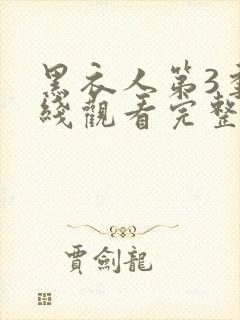 黑衣人第3季
綫觀看完整
賈劍龍